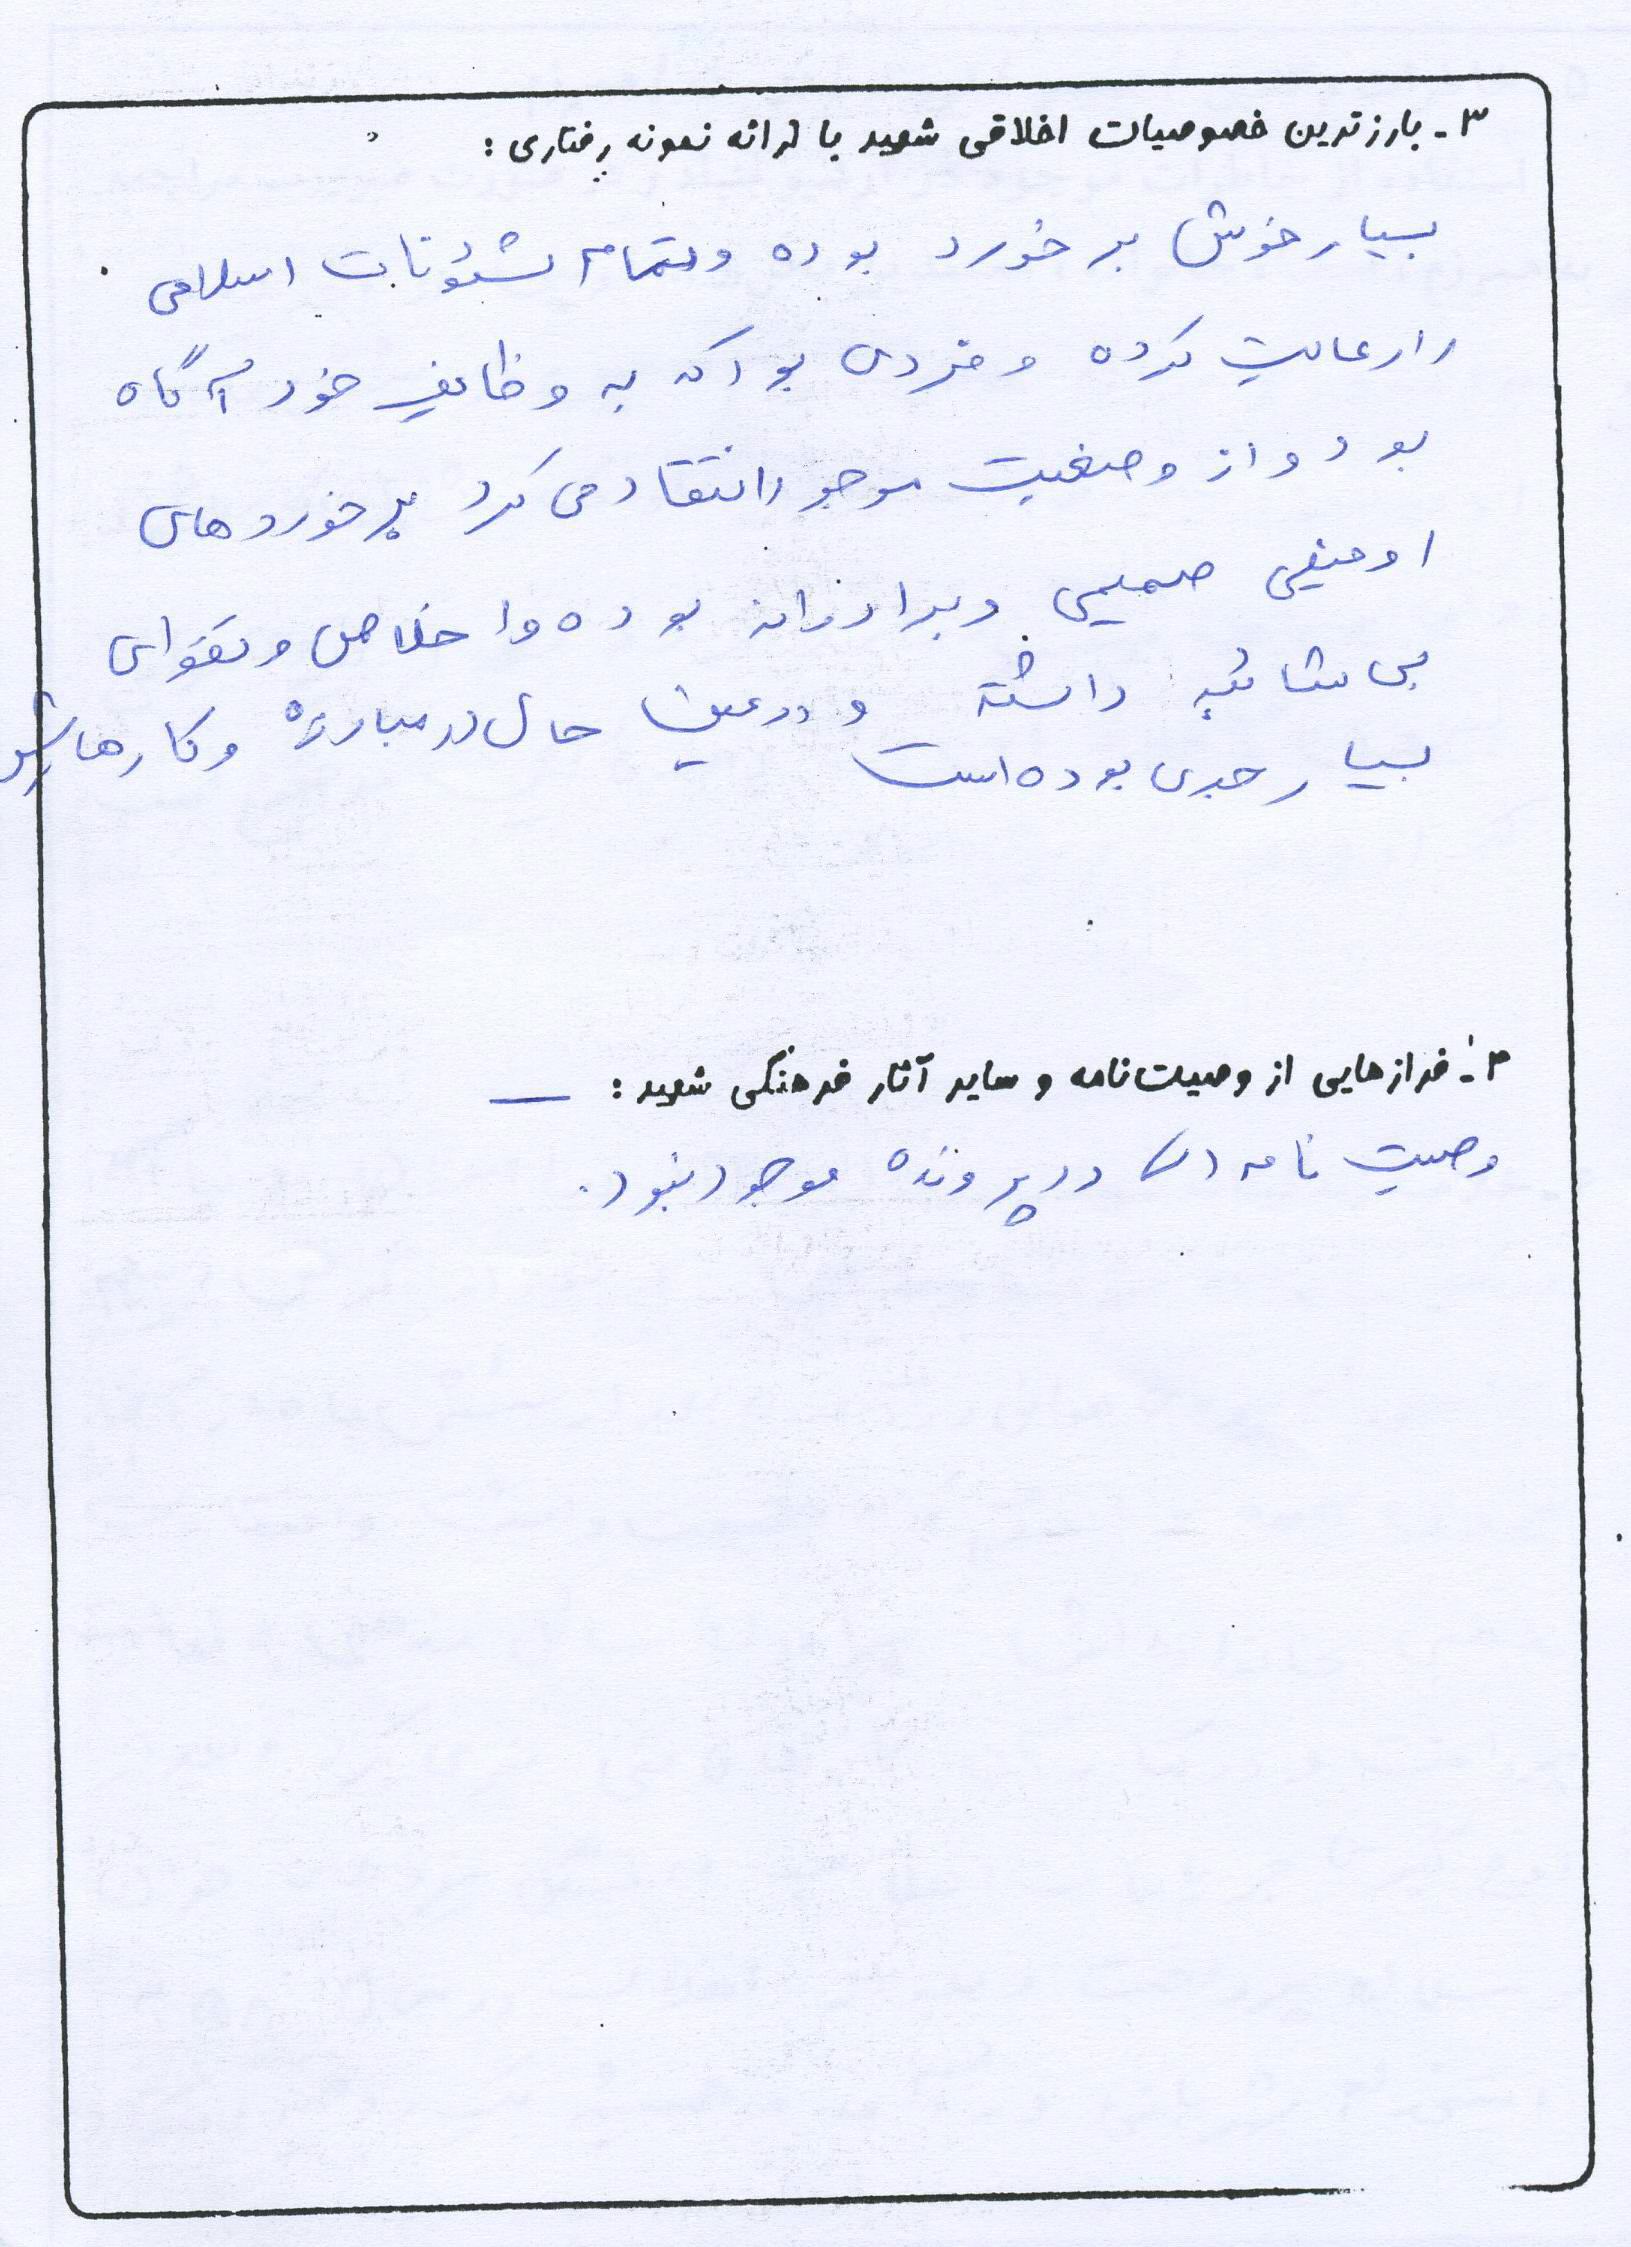 ۳- بارزترین خصوصیات اخلاقی شهید با ارائه نمونه رفتاری:
بسیار خوش برخورد بوده و تمام شئونات اسلامی
را رعایت کرده و فردی بود که به وظایف خود آگاه
بود و از وضعیت موجود انتقاد می کرد برخوردهای
او صمیمی و برادرانه بوده و اخلاص و تقوای
بی شائبه داشته و در عین حال در مبارزه و کارهایش
بسیار جدی بوده است
۴- فرازهایی از وصیت‌نامه و سایر آثار فرهنگی شهید: —
وصیت نامه ای در پرونده موجود نبود.